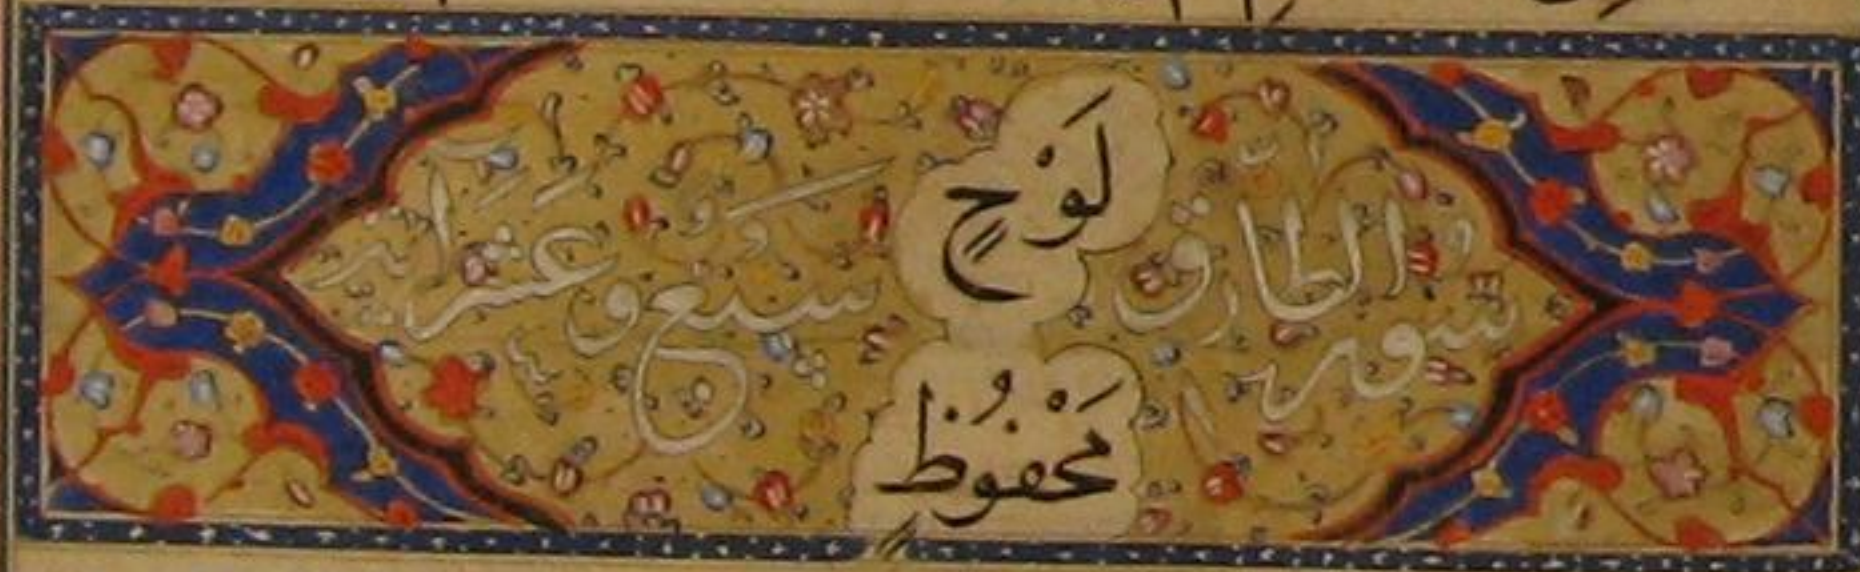 سورة الطارق
لَوْحٍ
مَحْفُوظٍ
سبع وعشر آية